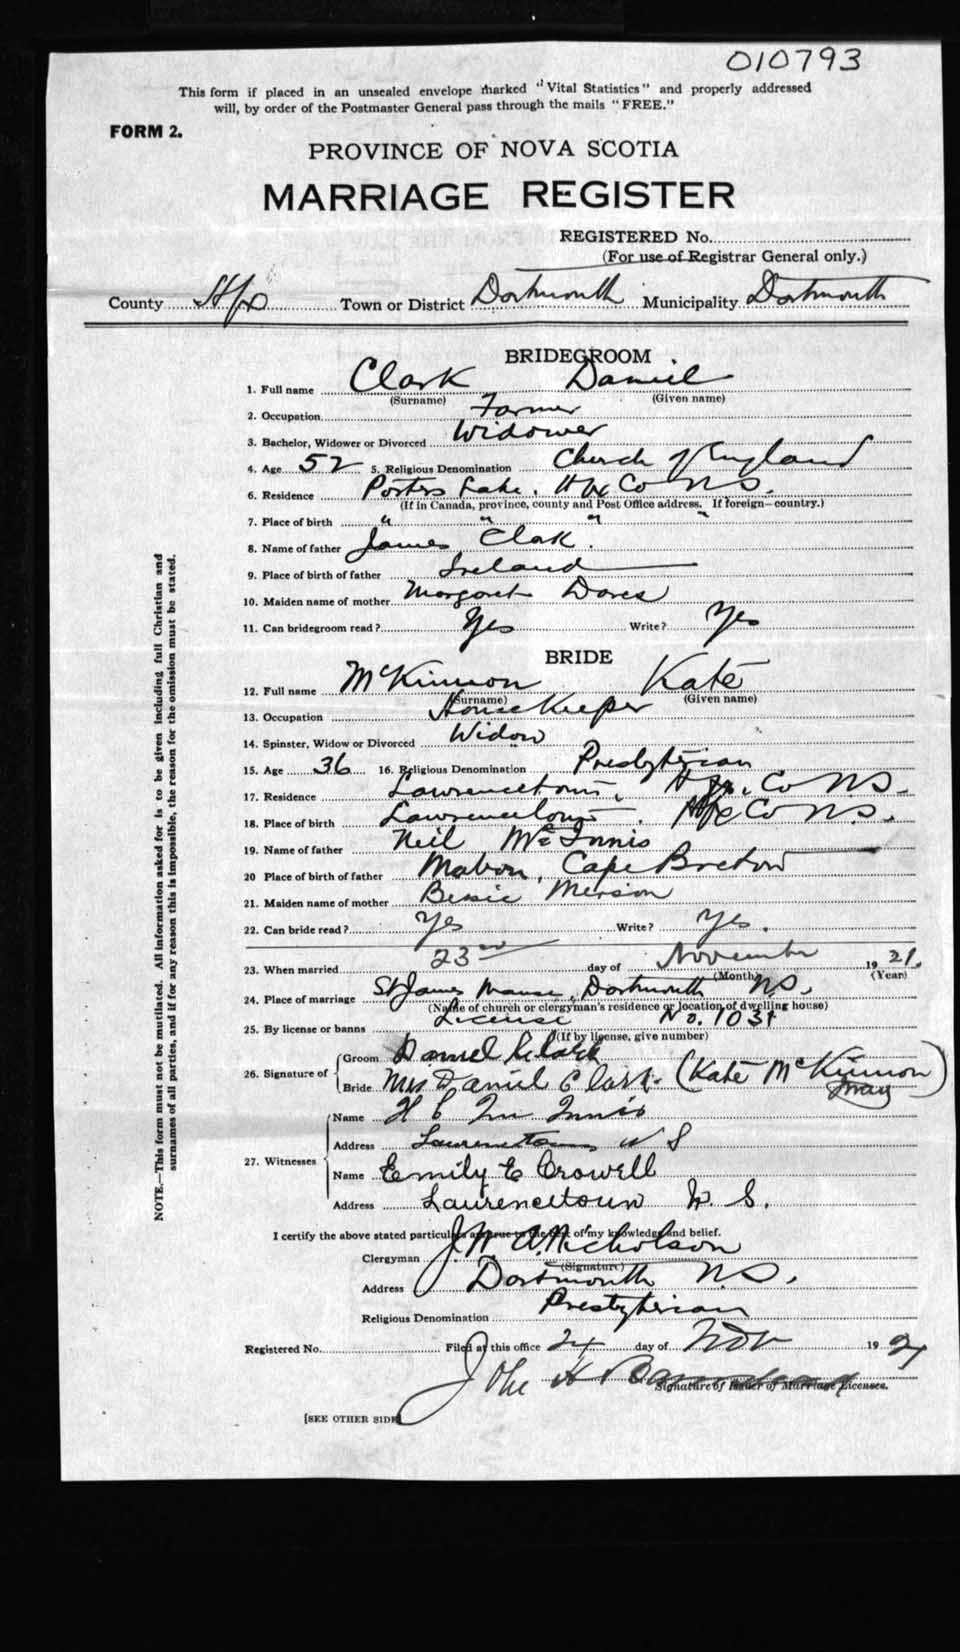 010793
This form if placed in an unsealed envelope marked "Vital Statistics" and properly addressed
will, by order of the Postmaster General pass through the mails "FREE."
FORM 2.
PROVINCE OF NOVA SCOTIA
MARRIAGE REGISTER
REGISTERED No.
(For use of Registrar General only.)
County Hfx Town or District Dartmouth Municipality Dartmouth
BRIDEGROOM
1. Full name Clark Daniel
(Surname) (Given name)
2. Occupation Farmer
3. Bachelor, Widower or Divorced Widower
4. Age 52 5. Religious Denomination Church of England
6. Residence Porters Lake, Hfx Co N.S.
(If in Canada, province, county and Post Office address. If foreign—country.)
7. Place of birth " " " "
8. Name of father James Clark.
9. Place of birth of father Ireland
10. Maiden name of mother Margaret Dores
11. Can bridegroom read? Yes Write? Yes
BRIDE
12. Full name McKinnon Kate
(Surname) (Given name)
13. Occupation Housekeeper
14. Spinster, Widow or Divorced Widow
15. Age 36 16. Religious Denomination Presbyterian
17. Residence Lawrencetown, Hfx. Co N.S.
18. Place of birth Lawrencetown. Hfx Co N.S.
19. Name of father Neil McInnis
20 Place of birth of father Mabou, Cape Breton
21. Maiden name of mother Bessie
22. Can bride read? Yes Write? Yes.
23. When married 23rd day of November 1921.
(Month) (Year)
24. Place of marriage St James Manse, Dartmouth N.S.
(Name of church or clergyman's residence or location of dwelling house)
25. By license or banns License No. 1031
(If by license, give number)
26. Signature of Groom Daniel Clark
Bride Mrs Daniel Clark (Kate McKinnon)
27. Witnesses Name H C McInnis
Address Lawrencetown N S
Name Emily E Crowell
Address Laurencetown N. S.
I certify the above stated particulars are true to the best of my knowledge and belief.
Clergyman J. W. A. Nicholson
(Signature)
Address Dartmouth N.S.
Religious Denomination Presbyterian
Registered No. Filed at this office 24 day of Nov 1921
John H
Signature of Issuer of Marriage Licenses.
[SEE OTHER SIDE]
NOTE.—This form must not be mutilated. All information asked for is to be given including full Christian and
surnames of all parties, and if for any reason this is impossible, the reason for the omission must be stated.